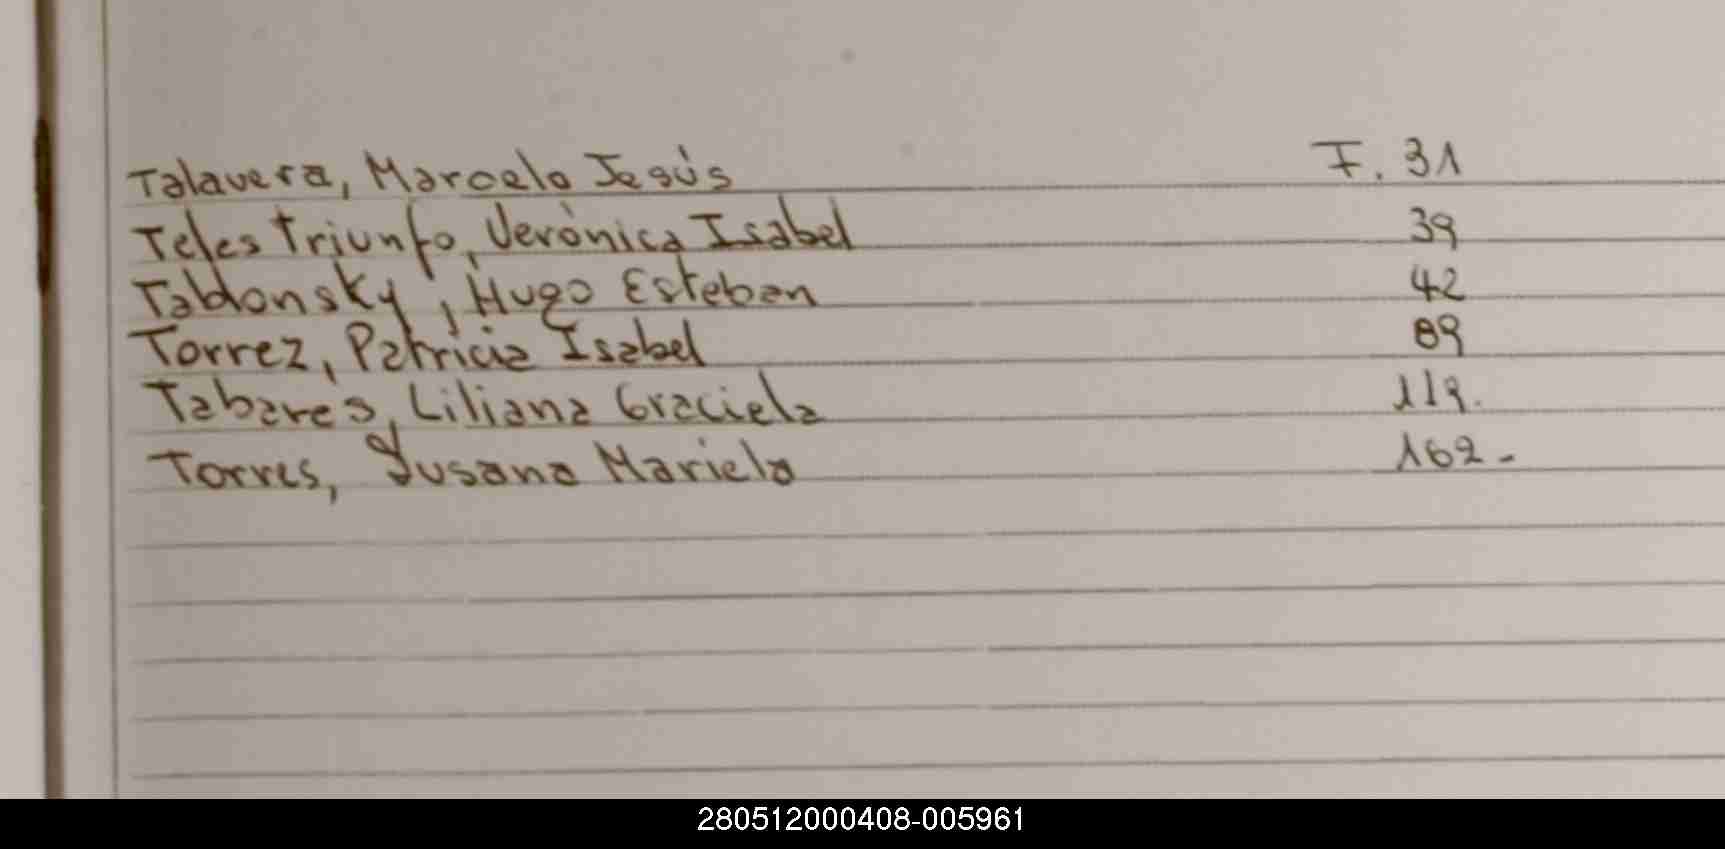 Talavera, Marcelo Jesús F. 31
Teles Triunfo, Verónica Isabel 39
Tablonsky, Hugo Esteban 42
Torrez, Patricia Isabel 89
Tabares, Liliana Graciela 119.
Torres, Susana Mariela 162-
280512000408-005961